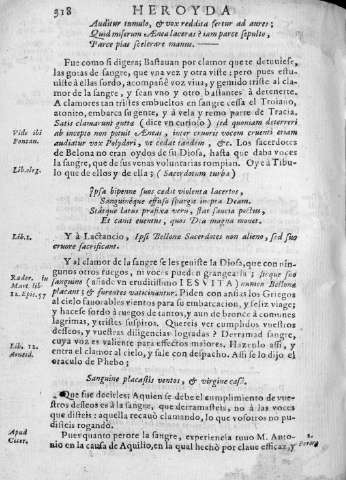 318 HEROYDA
Auditur tumulo, & vox reddita fertur ad aures;
Quid miserum Ænea laceras? iam parce sepulto,
Parce pias scelerare manus.
Fue como si digera; Bastauan por clamor que te detuuiese,
las gotas de sangre, que vna vez y otra viste: pero pues estu-
uiste à ellas sordo, acompañè voz viua, y gemido triste al cla-
mor de la sangre, y sean vno y otro bastantes à detenerte.
A clamores tan tristes embueltos en sangre cessa el Troiano,
atonito, embarca su gente, y à vela y remo parte de Tracia.
Satis clamauit gutta (dice vn curioso) sed quoniam deterreri
Vide ibi Pontan.
ab incepto non potuit Æneas, inter cruoris vocem cruenti etiam
audiatur vox Polydori, vt cedat tandem, &c. Los sacerdotes
de Belona no eran oydos de su Diosa, hasta que daba voces
la sangre, que de sus venas voluntarias rompian. Oye à Tibu-
Lib. eleg.
lo que de ellos y de ella; (Sacerdotum turba)
Ipsa bipenne suos cædit violenta lacertos,
Sanguinèque effuso spargit inpta Deam.
Statque latus præfixa veru, stat saucia pectus,
Et canit euentus, quos Dia magna monet.
Lib. 1.
Y à Lactancio, Ipsi Bellonæ Sacerdotes non alieno, sed suo
cruore sacrificant.
Y al clamor de la sangre se les
la Diosa, que con nin-
gunos otros ruegos, ni voces pueden grangearla; sicque suo
Rader. in Mart. lib. 12. Epi. 57
sanguine (añade vn eruditissimo IESVITA) numen Bellonæ
placant; & furentes vaticinantur. Piden con ansias los Griegos
al cielo fauorables vientos para su embarcacion, y feliz viage;
y hacese sordo à ruegos de tantos, y aun de bronce à comunes
lagrimas, y tristes suspiros. Quereis ver cumplidos vuestros
desseos, y vuestras diligencias logradas? Derramad sangre,
cuya voz es valiente para effectos maiores. Hazenlo assi, y
Lib. 12. Aeneid.
entra el clamor al cielo, y sale con despacho. Assi se lo dijo el
oraculo de Phebo;
Sanguine placastis ventos, & virgine cæsa.
Que fue decirles: A quien se debe el cumplimiento de vues-
tros desseos es à la sangre, que derramasteis, no à las voces
que disteis: aquella recaudò clamando, lo que vosotros no pu-
disteis rogando.
Apud Cicer.
Pues quanto perore la sangre, experiencia tuuo M. Anto-
nio en la causa de Aquilio, en la qual hechò por clause efficaz, y